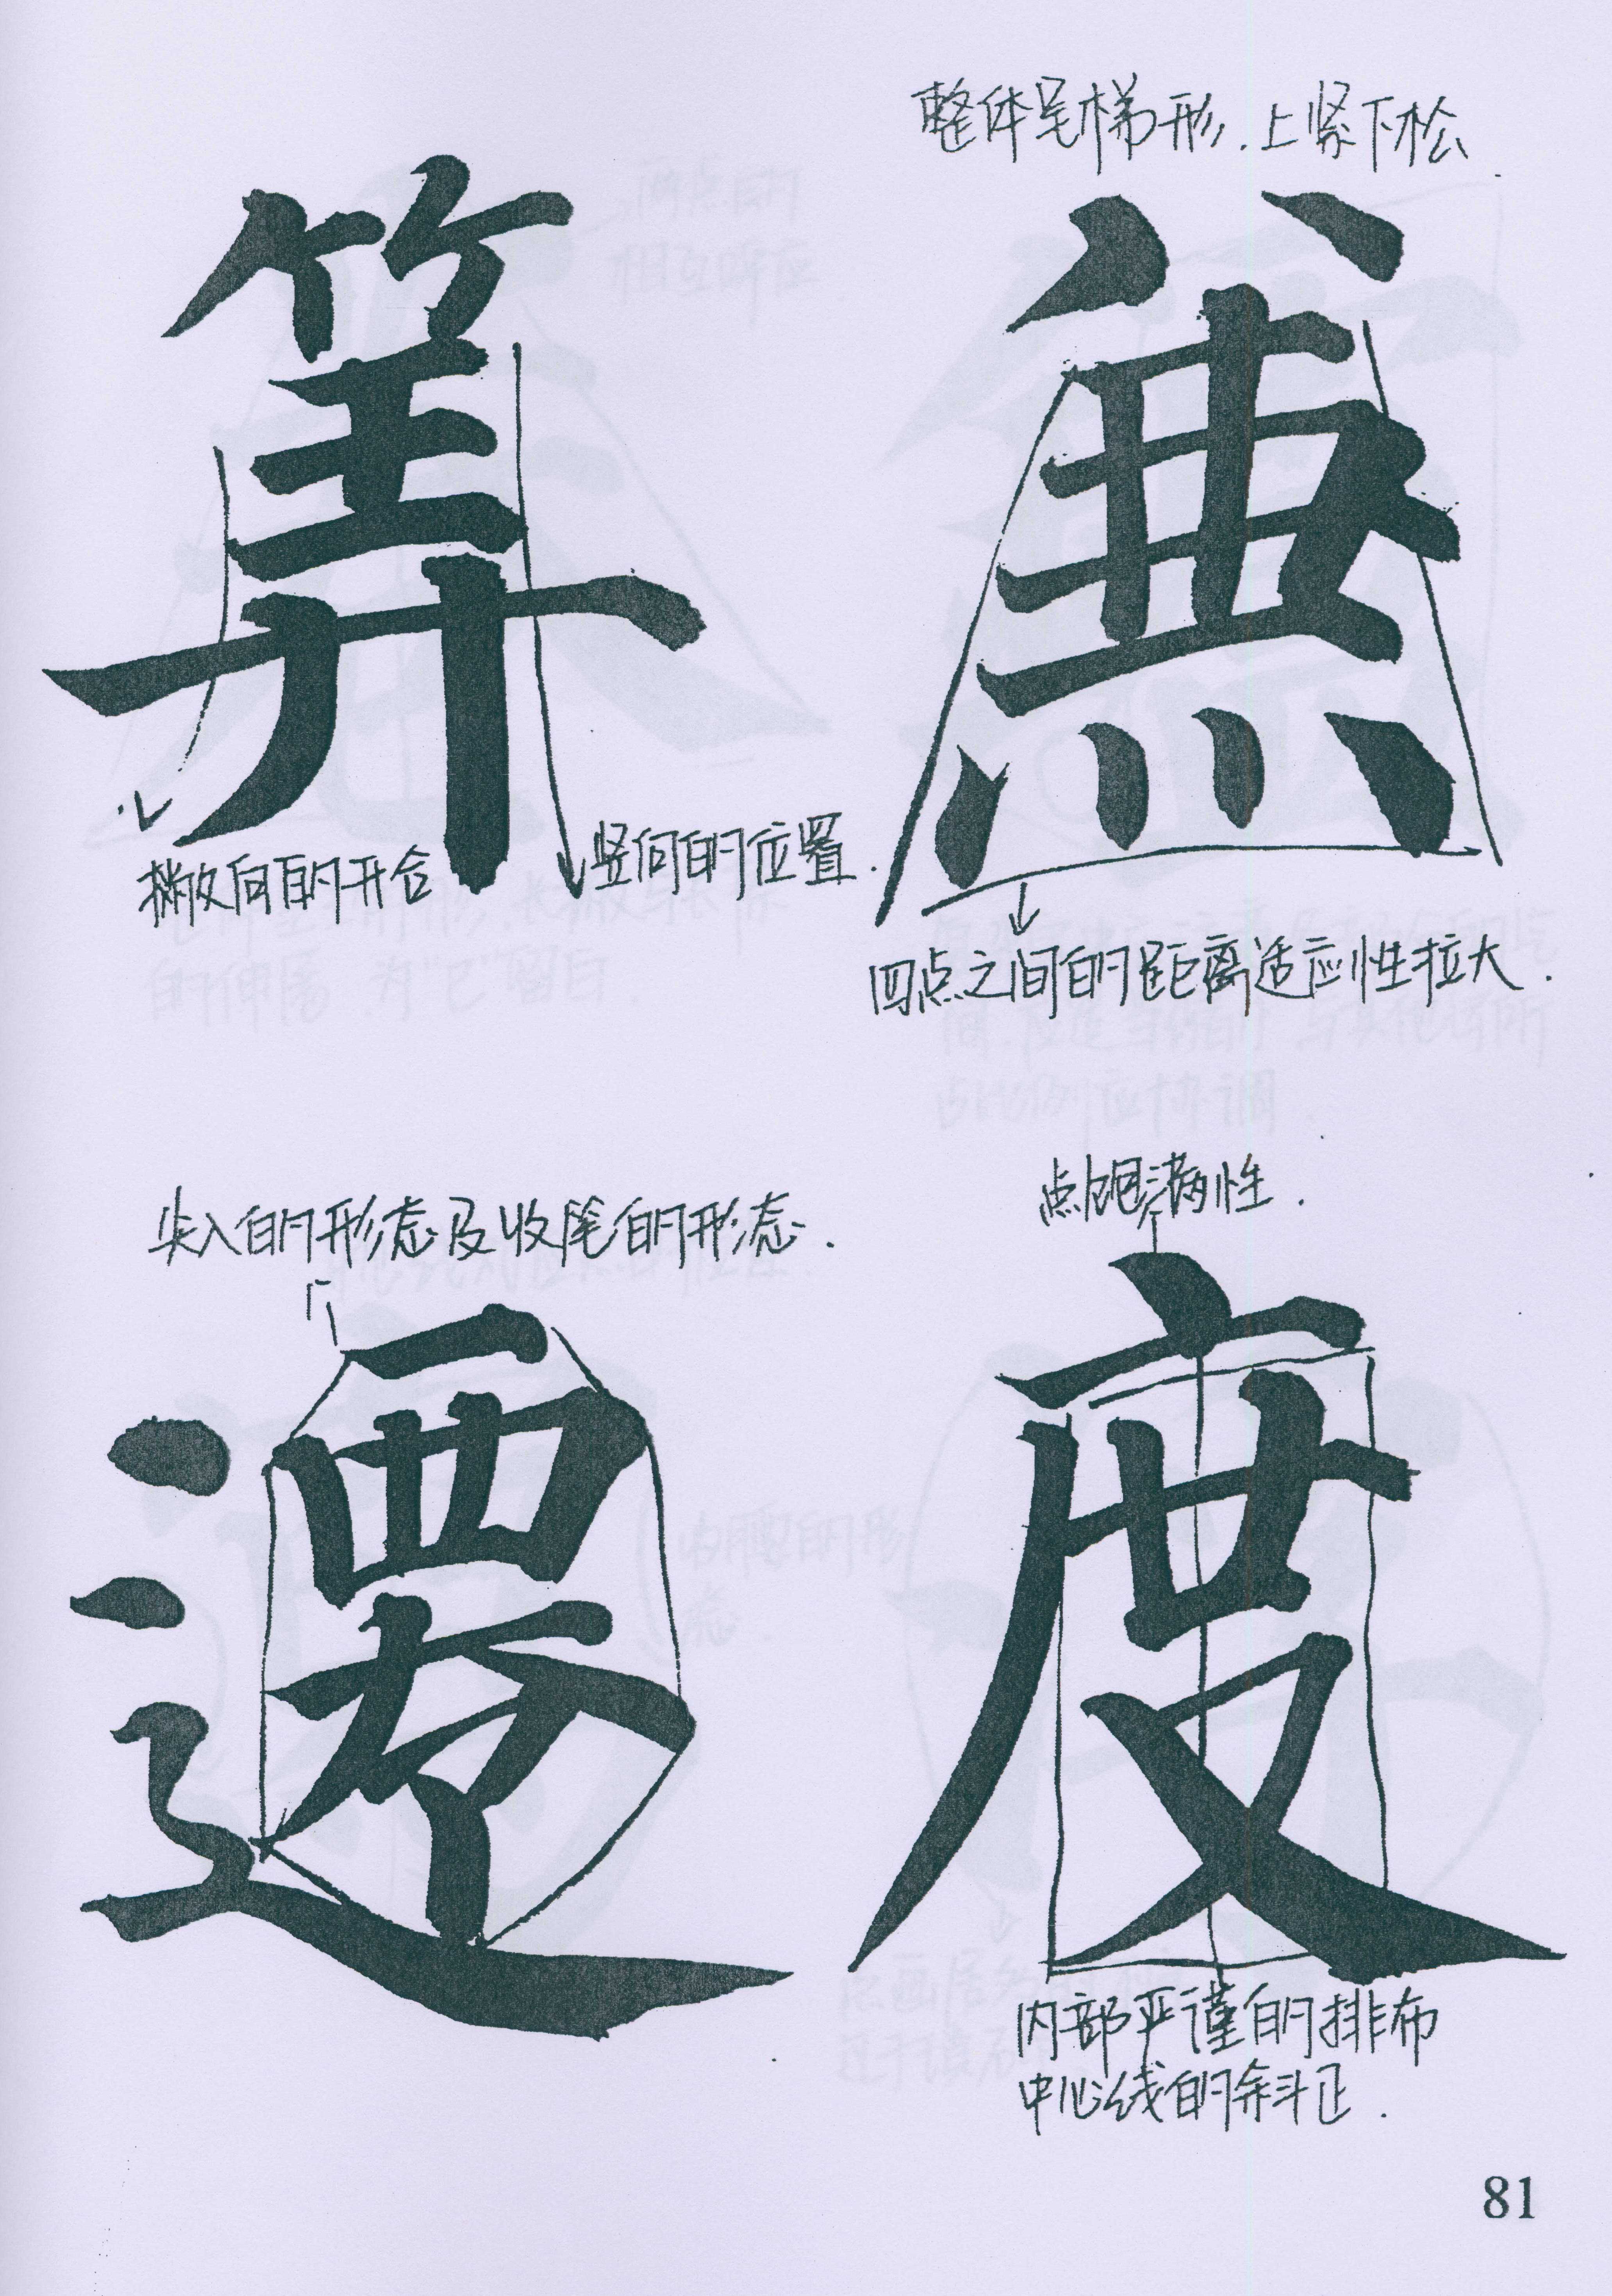 整体呈梯形.上紧下松
筭
無
撇向的开合
竖向的位置.
四点之间的距离适应性拉大.
尖入的形态及收笔的形态.
点饱满性.
遷
度
内部严谨的排布
中心线的斜正.
81